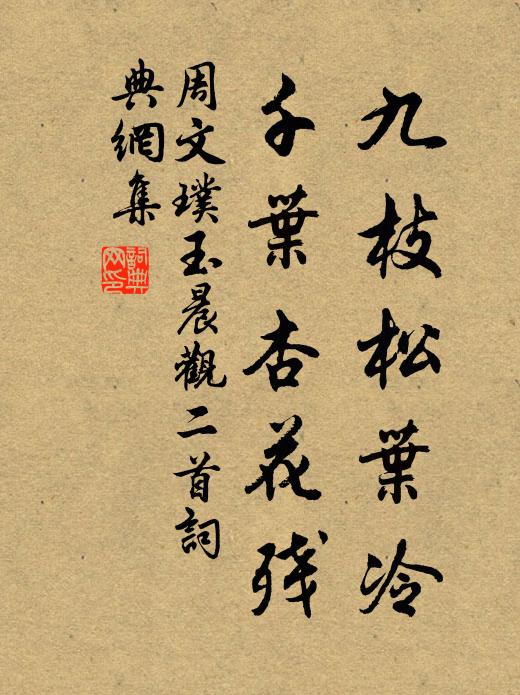 九枝松葉冷
千葉杏花残
周文璞玉晨觀二首詞
典網集
詞典網印